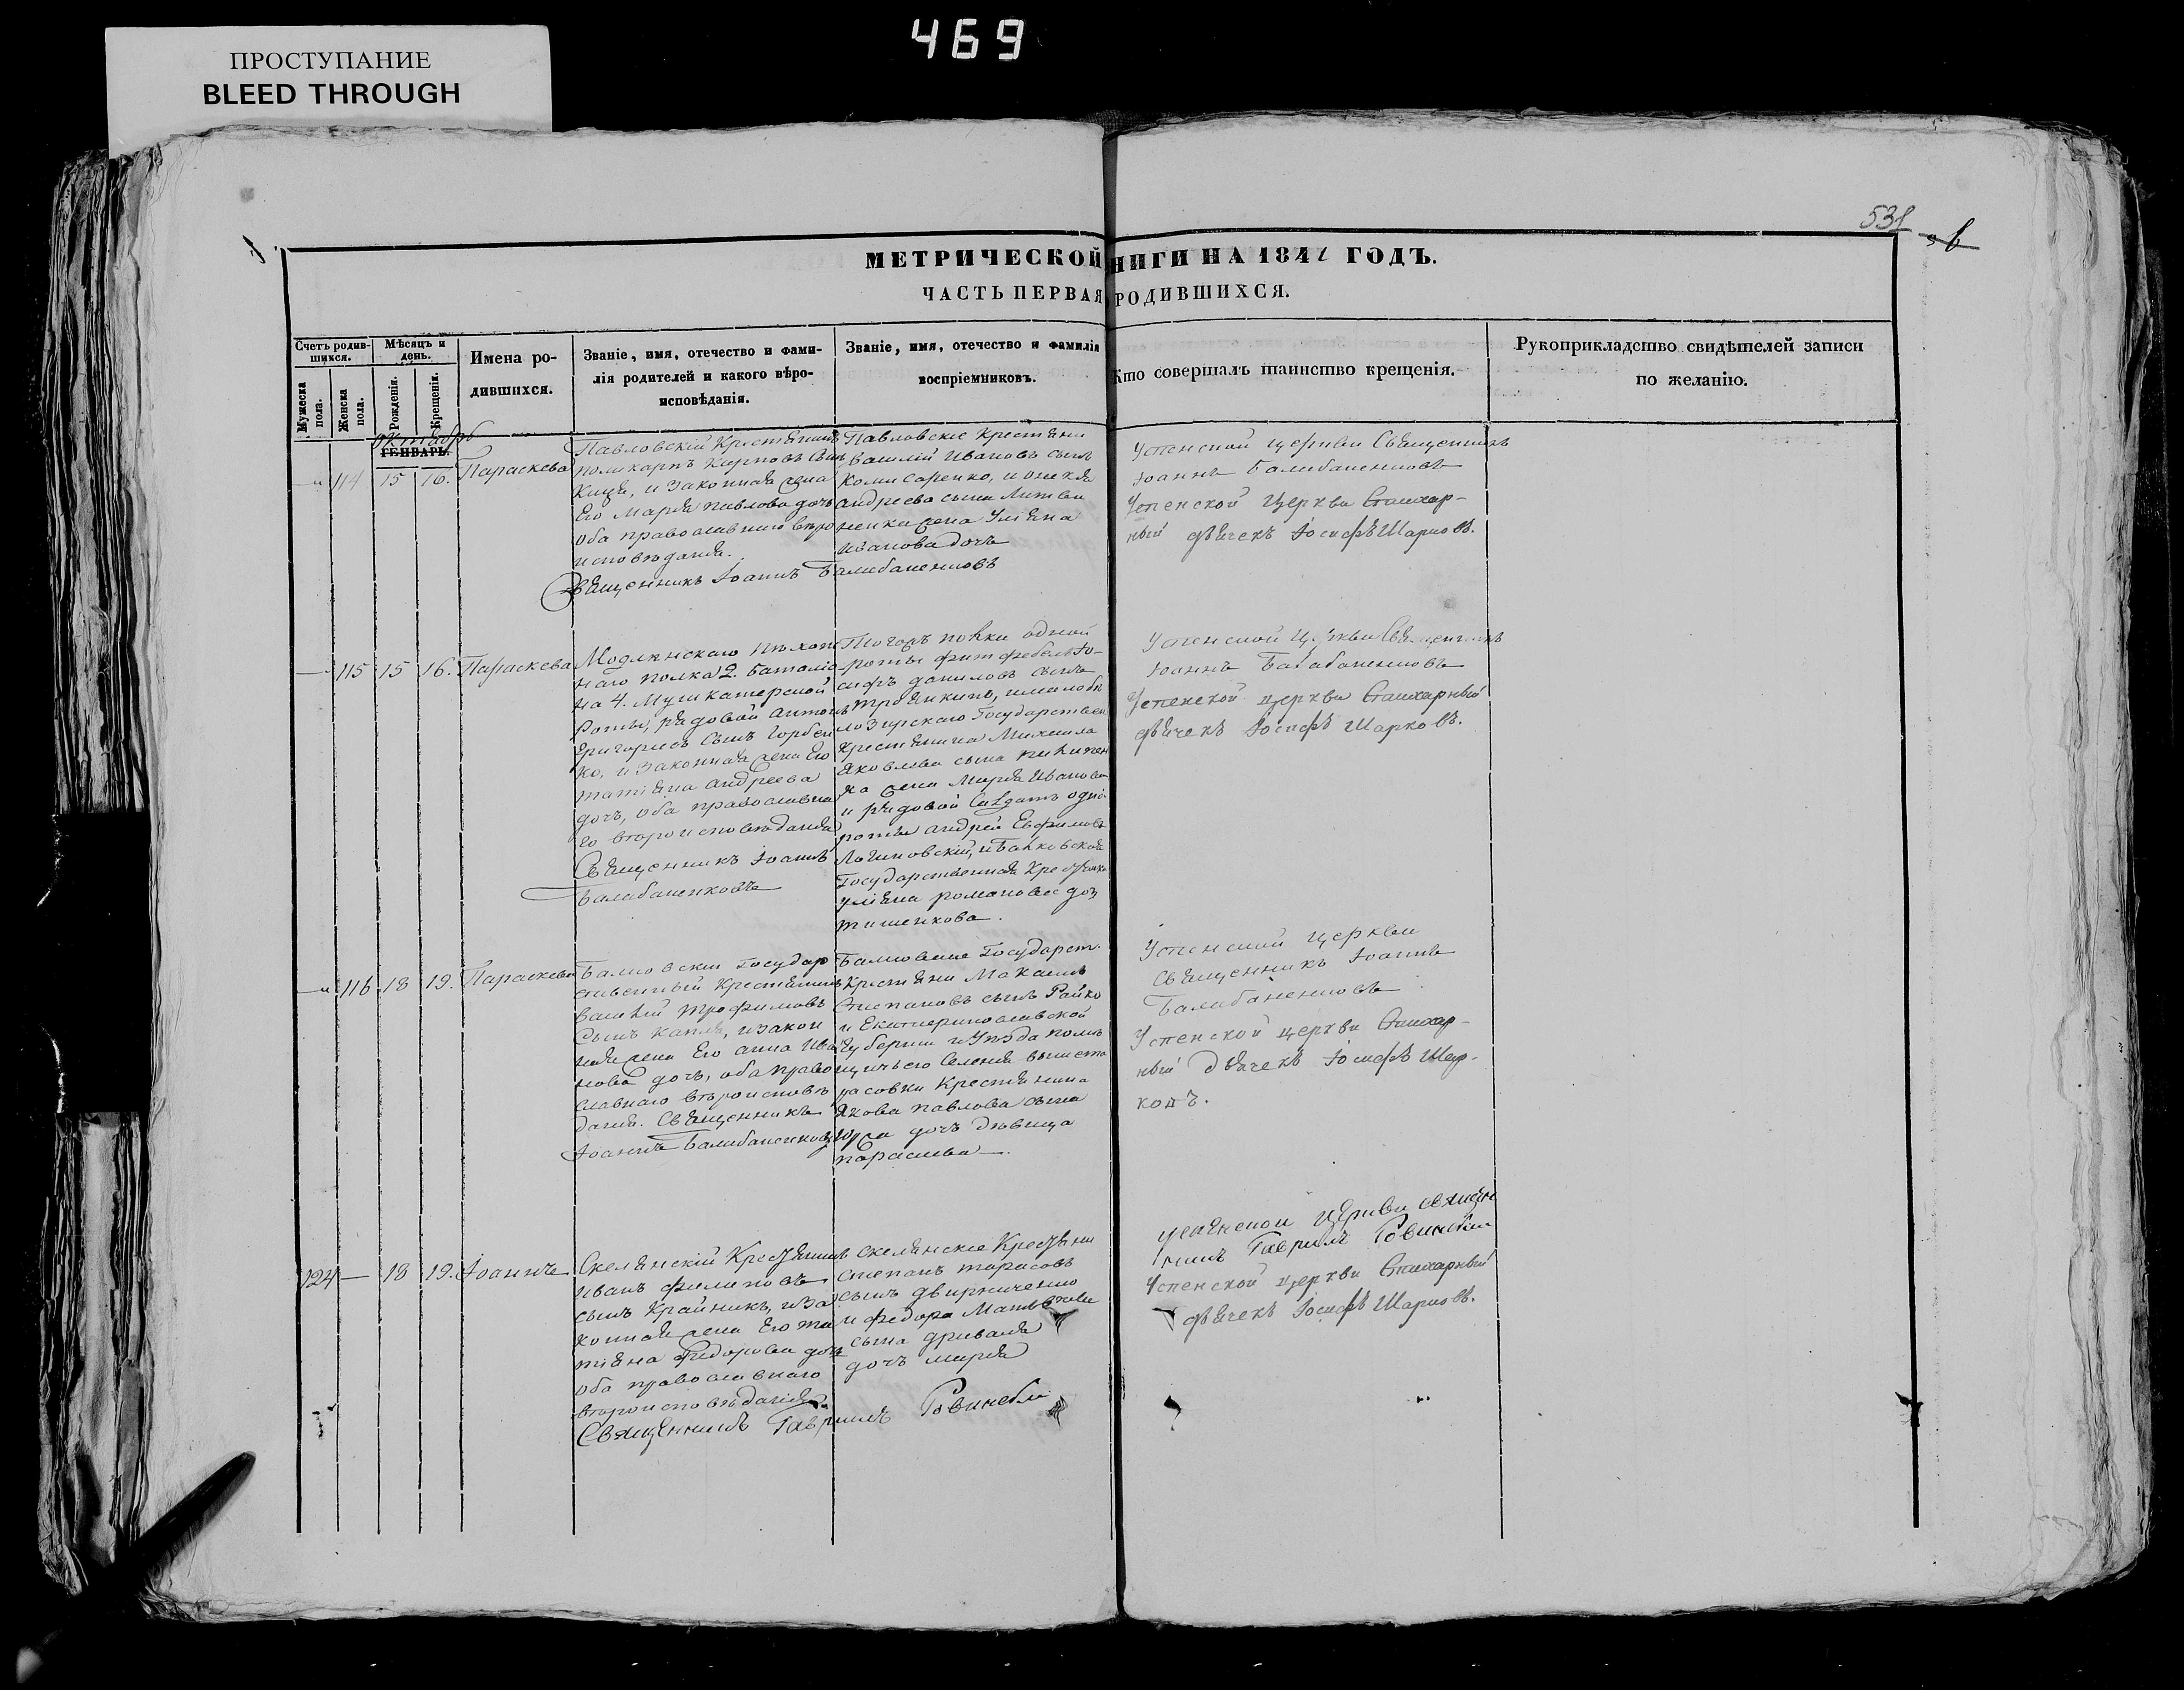 469
ПРОСТУПАНИЕ
BLEED THROUGH
531
МЕТРИЧЕСКОЙ НИГИ НА 184 ГОДЪ.
ЧАСТЬ ПЕРВАЯ РОДИВШИХСЯ.
Счетъ родив-
шихся.
Мужеска
пола.
Женска
пола.
Мѣсяцъ и
день.
Рожденія.
Крещенія.
Имена ро-
дившихся.
Званіе, имя, отечество и фами-
лія родителей и какого вѣро-
исповѣданія.
Званіе, имя, отечество и фамилія
воспріемниковъ.
Кто совершалъ таинство крещенія.
Рукоприкладство свидѣтелей записи
по желанію.
Октябрь
ГЕНВАРЬ.
114 15 16. Параскева
Павловскій Крестянинъ
поликарпъ Карповъ Сынъ
и законная жена
Его Марѳа павлова дочь
оба православнаго вѣро
исповѣданія.
Священникъ Іоаннъ Балабаненковъ
Павловскіе Крестяни
Василій Ивановъ сынъ
Комисаренко, и
андреева сына Литви
ненка жена Уліяна
Иванова дочь
Успенской церкви Священникъ
Іоаннъ Балабаненковъ
Успенской Церкви Стихар-
ный дьячекъ Іосифъ Шарковъ.
115 15 16. Параскева
Модлинскаго пѣхот
наго полка 2. баталіо
на 4. Мушкатерской
роты, рядовой антонъ
Григорьевъ Сынъ Горбен
ко, и законная жена Его
татіяна андреева
дочь, оба православна
го вѣроисповѣданія
Священникъ Іоаннъ
Балабаненковъ
Тогожъ полка одной
роты фитфебель Іо-
сифъ даниловъ сынъ
Государствен
Крестянина Михаила
яковлева сына
ка жена Марѳа Иванова
и рядовой Салдатъ одной
роты андрей Евфимовъ
Логиновскій, и
Государственная Крестянка
уліяна романова доч
тишенкова.
Успенской Церкви Священникъ
Іоаннъ Балабаненковъ
Успенской церкви Стихарный
дьячекъ Іосифъ Шарковъ.
116 18 19. Параскева
Балковски Государ
ственный Крестянинъ
василій трофимовъ
Сынъ капля, и закон
ная жена Его анна Ива
нова дочь, оба право
славнаго вѣроисповѣ
данія. Священникъ
Іоаннъ Балабаненковъ
Балковские Государст.
Крестяни Максимъ
Степановъ сынъ Райко
и Екатеринославской
Губерніи и Уѣзда помѣ
щичьего Селенія вышета
расовки Крестянина
Якова павлова сына
дочь дѣвица
параскева
Успенской церкви
Священникъ Іоаннъ
Балабаненковъ
Успенской церкви Стихар-
ный Дьячекъ Іосифъ Шар-
ковъ.
124 — 18 19. Іоаннъ
Скелянскій Крестянинъ
иванъ филиповъ
сынъ Крайникъ, и за
конная жена Его та
тіяна Федорова дочь
оба православнаго
вѣроисповѣданія.
Священникъ Гавриилъ
скелянскіе Крестяни
степанъ тарасовъ
сынъ дворниченко
и федора Матвѣева
сына дривала
дочь марѳа
успенской церкви священ
никъ Гавриилъ
Успенской церкви Стихарный
дьячекъ Іосифъ Шарковъ.